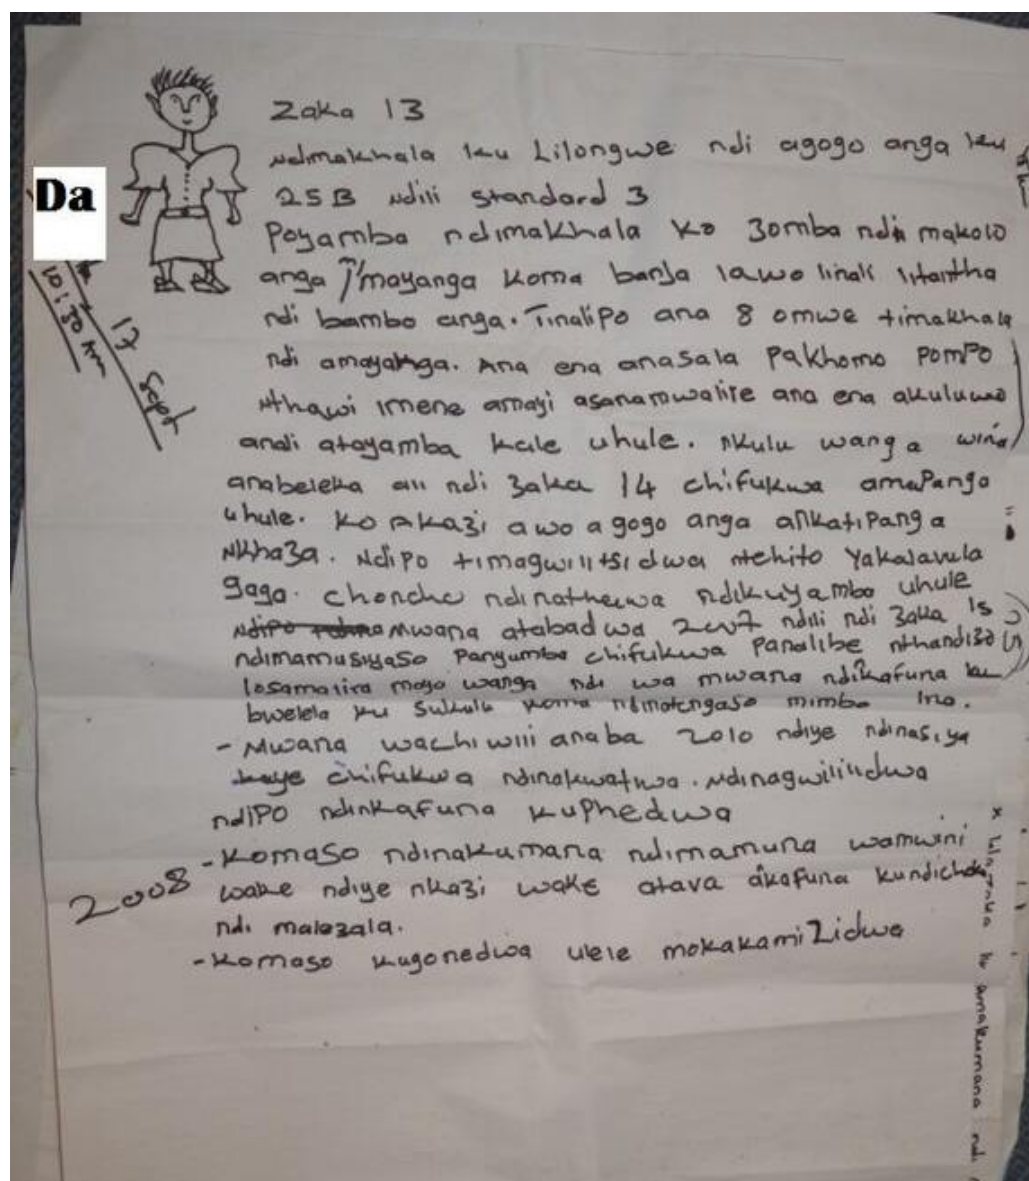 Zaka 13
Ndimakhala ku Lilongwe ndi agogo anga ku
25B Ndili standard 3
Poyamba ndimakhala ko Zomba ndi makolo
anga /mayanga koma banja lawo linali litantha
ndi bambo anga. Tinalipo ana 8 omwe timakhala
ndi amayanga. Ana ena anasala pakhomo pompo
Nthawi imene amayi asanamwalire ana ena akuluwo
andi atayamba kale uhule. Nkulu wanga wina
anabeleka ali ndi zaka 14 chifukwa amapanga
uhule. Ko akazi awo agogo anga ankatipanga
Nkhaza. Ndipo timagwilitsidwa ntchito yakalavula
gaga. Choncho ndinatheiwa ndikuyamba uhule
Mwana atabadwa 2007 ndili ndi zaka 15
ndimamusiyaso panyumba chifukwa panalibe nthandizo
losamalira moyo wanga ndi wa mwana ndikafuna ku
bwelela ku sukulu koma ndimatengaso mimba ina.
- Mwana wachiwiri anaba 2010 ndiye ndinasiya
chifukwa ndinakwatiwa. Ndinagwiliridwa
ndipo ndinkafuna kuphedwa
2008 - Komaso ndinakumana ndimamuna wamwini
wake ndiye nkazi wake atava akafuna kundichoka
ndi malezala.
- Komaso kugonedwa ulele mokakamizidwa
Da
17 Sept
10:30 Am
amakumana ndi